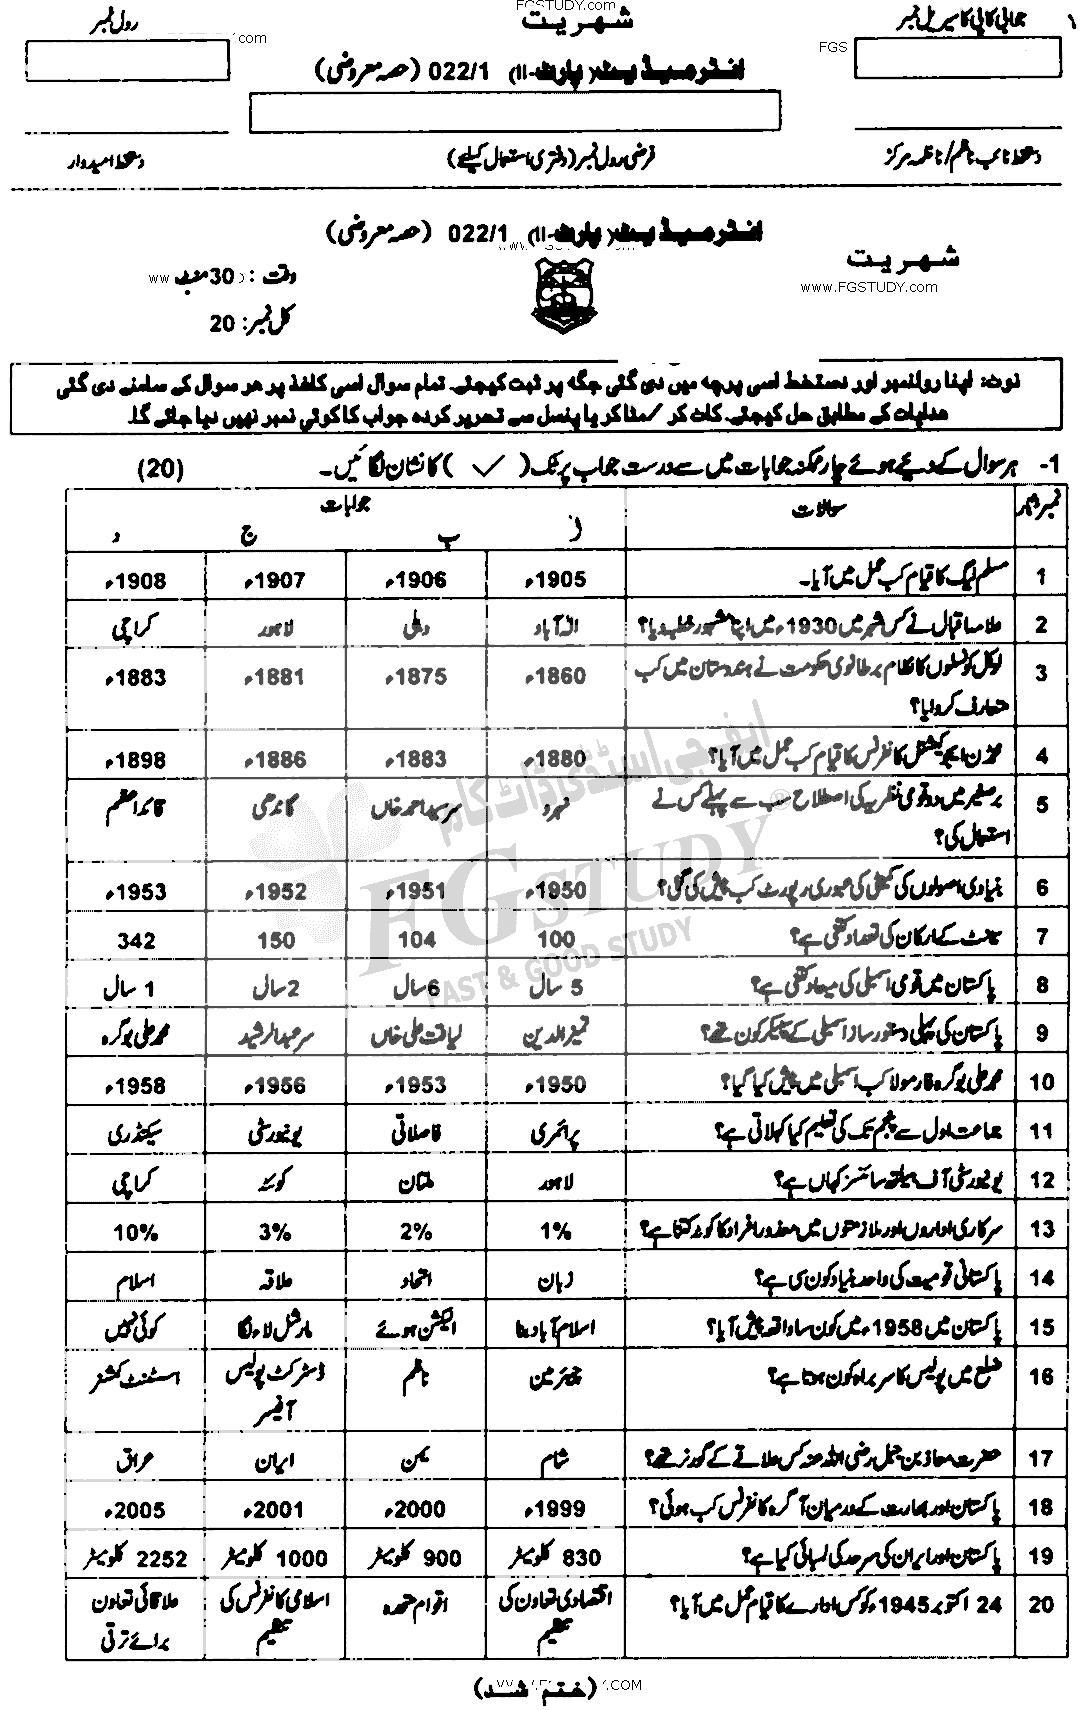 FGSTUDY.com
شہریت
جوابی کاپی کا سیریل نمبر
رول نمبر
.com
FGS
انٹرمیڈیٹ (پارٹ-II) 022/1 (حصہ معروضی)
دستخط نائب ناظم/ناظمہ مرکز
فرضی رول نمبر (دفتری استعمال کیلئے)
دستخط امیدوار
انٹرمیڈیٹ (پارٹ-II) 022/1 (حصہ معروضی)
شہریت
www.FGSTUDY.com
وقت : 30 منٹ
کل نمبر: 20
نوٹ: اپنا رولنمبر اور دستخط اسی پرچہ میں دی گئی جگہ پر ثبت کیجئے۔ تمام سوال اسی کاغذ پر ہر سوال کے سامنے دی گئی
ہدایات کے مطابق حل کیجئے۔ کاٹ کر /مٹا کر یا پنسل سے تحریر کردہ جواب کا کوئی نمبر نہیں دیا جائے گا۔
1- ہر سوال کے دیئے ہوئے چار ممکنہ جوابات میں سے درست جواب پر ٹک ( ✓ ) کا نشان لگائیں۔ (20)
نمبر شمار سوالات جوابات
ا ب ج د
1 مسلم لیگ کا قیام کب عمل میں آیا۔ 1905ء 1906ء 1907ء 1908ء
2 علامہ اقبال نے کس شہر میں 1930ء میں اپنا مشہور خطبہ دیا؟ الہ آباد دہلی لاہور کراچی
3 لوکل کونسلوں کا نظام برطانوی حکومت نے ہندوستان میں کب 1860ء 1875ء 1881ء 1883ء
متعارف کروایا؟
4 محمڈن ایجوکیشنل کانفرنس کا قیام کب عمل میں آیا؟ 1880ء 1883ء 1886ء 1898ء
5 برصغیر میں دو قومی نظریہ کی اصطلاح سب سے پہلے کس نے نہرو سرسید احمد خاں گاندھی قائد اعظم
استعمال کی؟
6 بنیادی اصولوں کی کمیٹی کی عبوری رپورٹ کب پیش کی گئی؟ 1950ء 1951ء 1952ء 1953ء
7 سینٹ کے ارکان کی تعداد کتنی ہے؟ 100 104 150 342
8 پاکستان میں قومی اسمبلی کی میعاد کتنی ہے؟ 5 سال 6 سال 2 سال 1 سال
9 پاکستان کی پہلی دستور ساز اسمبلی کے سپیکر کون تھے؟ تمیز الدین لیاقت علی خاں سر عبدالرشید محمد علی بوگرہ
10 محمد علی بوگرہ فارمولا کب اسمبلی میں پیش کیا گیا؟ 1950ء 1953ء 1956ء 1958ء
11 جماعت اول سے پنجم تک کی تعلیم کیا کہلاتی ہے؟ پرائمری فاصلاتی یونیورسٹی سیکنڈری
12 یونیورسٹی آف ہیلتھ سائنسز کہاں ہے؟ لاہور ملتان کوئٹہ کراچی
13 سرکاری اداروں اور ملازمتوں میں معذور افراد کا کوٹہ کتنا ہے؟ 1% 2% 3% 10%
14 پاکستانی قومیت کی واحد بنیاد کون سی ہے؟ زبان اتحاد علاقہ اسلام
15 پاکستان میں 1958ء میں کون سا واقعہ پیش آیا؟ اسلام آباد بنا الیکشن ہوئے مارشل لاء لگا کوئی نہیں
16 ضلع میں پولیس کا سربراہ کون ہوتا ہے؟ چیئرمین ناظم ڈسٹرکٹ پولیس اسسٹنٹ کمشنر
آفیسر
17 حضرت معاذ بن جبل رضی اللہ عنہ کس علاقے کے گورنر تھے؟ شام یمن ایران عراق
18 پاکستان اور بھارت کے درمیان آگرہ کانفرنس کب ہوئی؟ 1999ء 2000ء 2001ء 2005ء
19 پاکستان اور ایران کی سرحد کی لمبائی کیا ہے؟ 830 کلومیٹر 900 کلومیٹر 1000 کلومیٹر 2252 کلومیٹر
20 24 اکتوبر 1945ء کو کس ادارے کا قیام عمل میں آیا؟ اقتصادی تعاون کی اقوام متحدہ اسلامی کانفرنس کی علاقائی تعاون
تنظیم تنظیم برائے ترقی
ایف جی اسٹڈی ڈاٹ کام
FG STUDY ®
FAST & GOOD STUDY
(ختم شد)